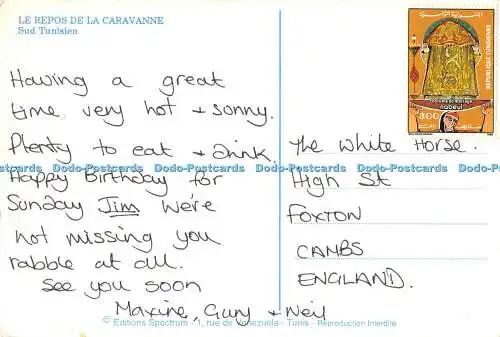 LE REPOS DE LA CARAVANNE
Sud Tunisien
Having a great
time, very hot + sonny.
Plenty to eat + drink.
Happy Birthday for
Sunday Jim we're
not missing you
rabble at all.
See you soon
Maxine, Guy + Neil
The White Horse.
High St
FOXTON
CAMBS
ENGLAND.
REPUBLIQUE TUNISIENNE
nabeul
300
© Editions Spectrum - 1, rue de Venezuela - Tunis - Reproduction Interdite
Dodo-Postcards Dodo-Postcards Dodo-Postcards Dodo-Postcards Dodo-Postcards Dodo-Postcards